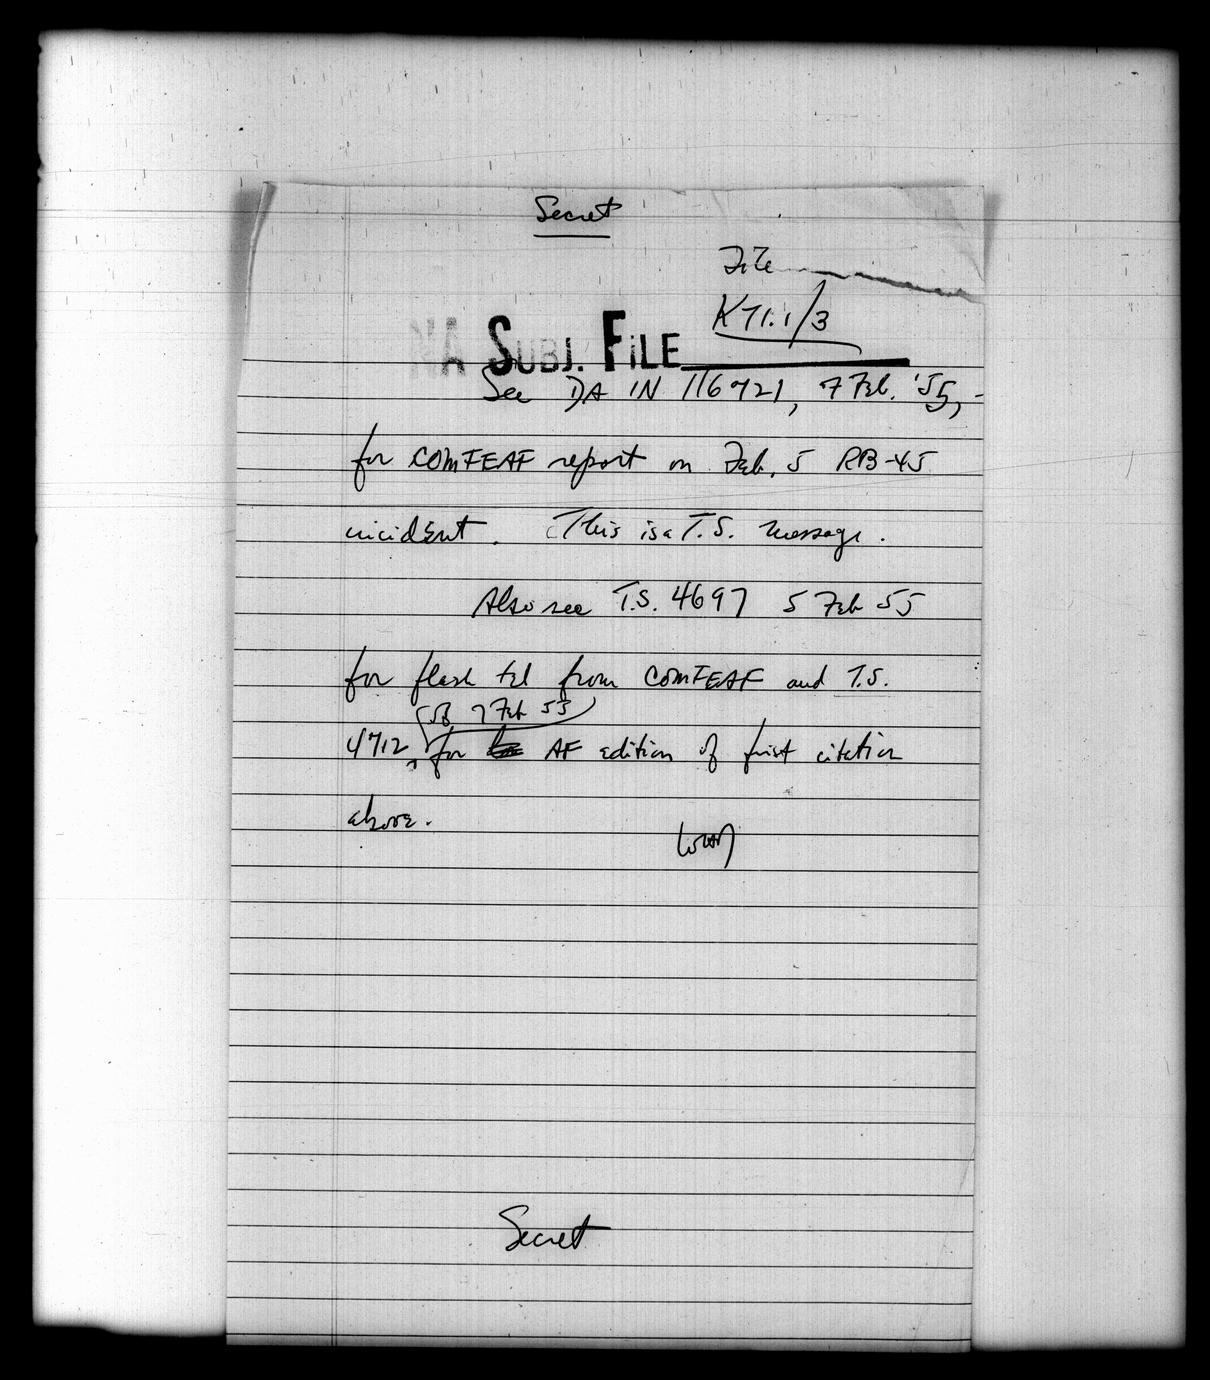 Secret
File
K71.1/3
NA SUBJ. FILE
See DA IN 116721, 7 Feb. '55,-
for COMFEAF report on Feb. 5 RB-45
incident. This is a T.S. message.
Also see T.S. 4697 5 Feb 55
for flash tel from COMFEAF and T.S.
7 Feb 55
4712, for AF edition of first citation
above.
Secret